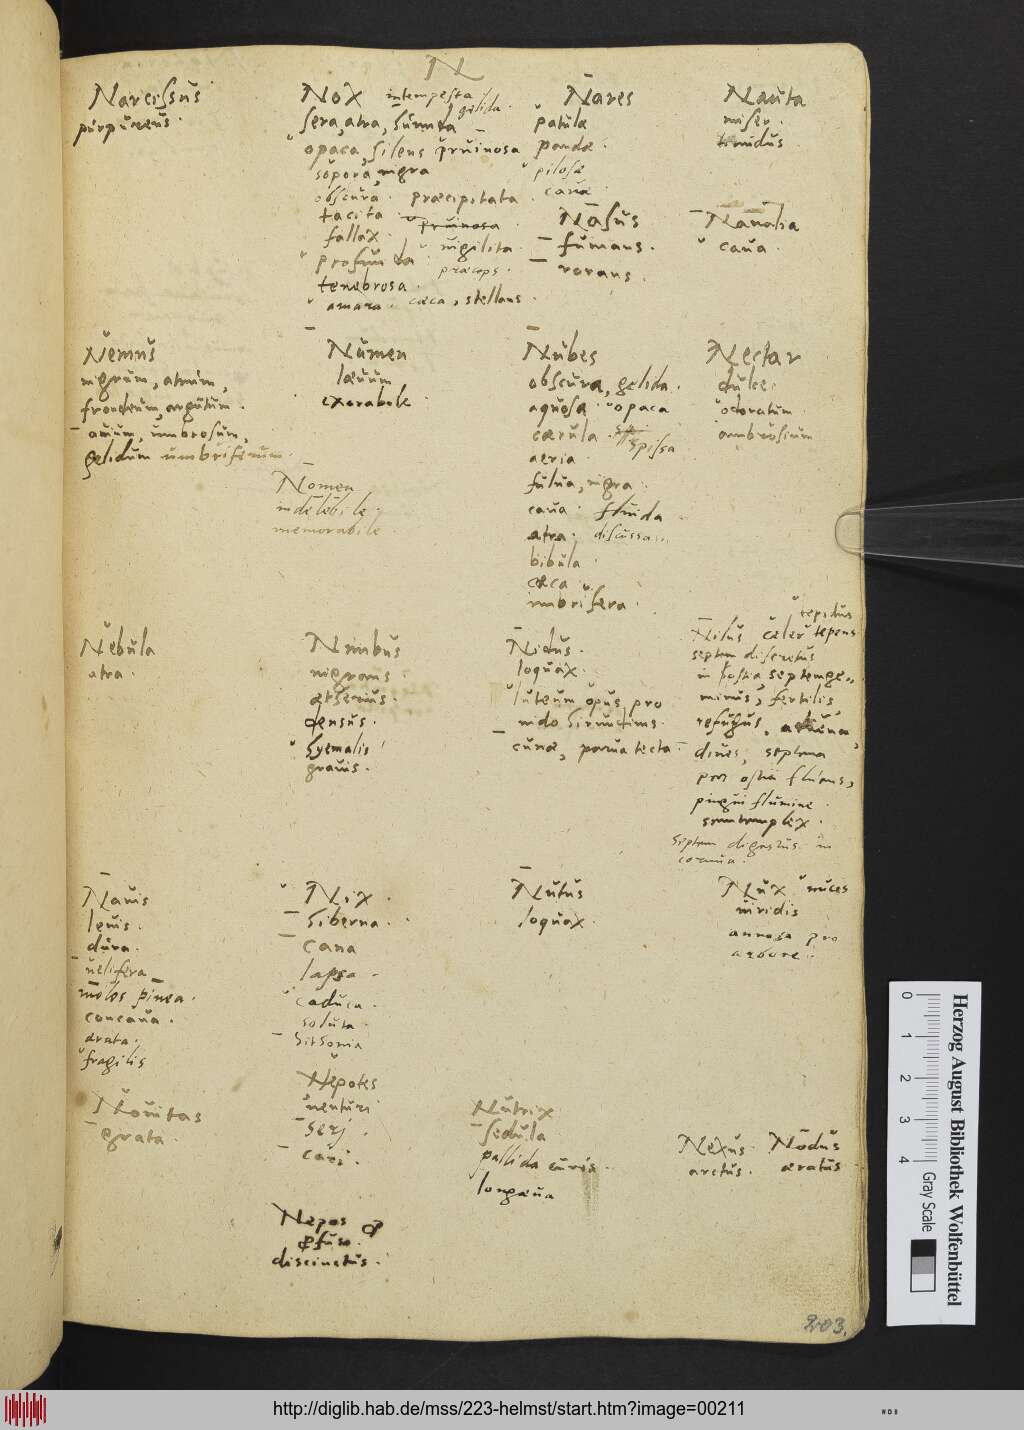 N
Narcissus
purpureus.
Nox intempesta
gelida.
sera, atra, humida
opaca, silens pruinosa
sopora, nigra
obscura. præcipitata
tacita pruinosa
fallax. vigilata.
profunda præceps.
tenebrosa.
amara. cæca, stellans.
Nares
patulæ
pandæ.
pilosæ
cauæ.
Nasus
fumans.
rorans.
Nauta
miser.
timidus
Naualia
caua.
Nemus
nigrum, atrum,
frondeum, argutum.
auium, umbrosum,
gelidum umbriferum.
Numen
læuum
exorabile.
Nomen
indelebile.
memorabile
Nubes
obscura, gelida.
aquosa. opaca
cærula. spissa
aeria.
fulua, nigra
caua. fluida
atra. discussa
bibula.
cæca
imbrifera.
Nectar
dulce.
odoratum
ambrosium
Nebula
atra.
Nimbus
nigrans.
ætherius.
densus.
hyemalis
grauis.
Nidus.
loquax.
luteum opus pro
nido hirundinis.
cunæ, parua tecta
tepidus
Nilus celer tepens
septem discretus
in hostia septemge,,
minus, fertilis
refugus, aduena,
diues, septena
per ostia fluens,
pingui flumine.
semtemplex.
septem digestus in
cornua.
Nauis
leuis.
dura.
uelifera
moles pinea.
concaua.
ærata.
fragilis
Nix.
hiberna.
cana
lapsa.
caduca.
soluta.
Sithonia
Nutus
loquax.
Nux nuces
uiridis
annosa pro
arbore.
Nouitas
grata.
Nepotes
uenturi
serj.
cari.
Nutrix
sedula
pallida curis.
longæua
Nexus
arctus.
Nodus
æratus
Nepos
discinctus.
203.
0 1 2 3 4
Herzog August Bibliothek Wolfenbüttel
Gray Scale
http://diglib.hab.de/mss/223-helmst/start.htm?image=00211